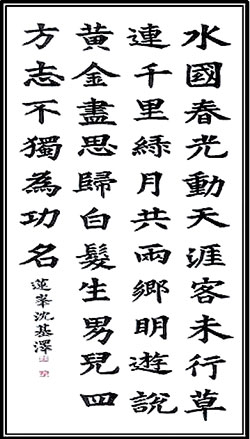 水國春光動天涯客未行草
連千里綠月共兩鄉明遊說
黃金盡思歸白髮生男兒四
方志不獨為功名
蓮峯沈基澤